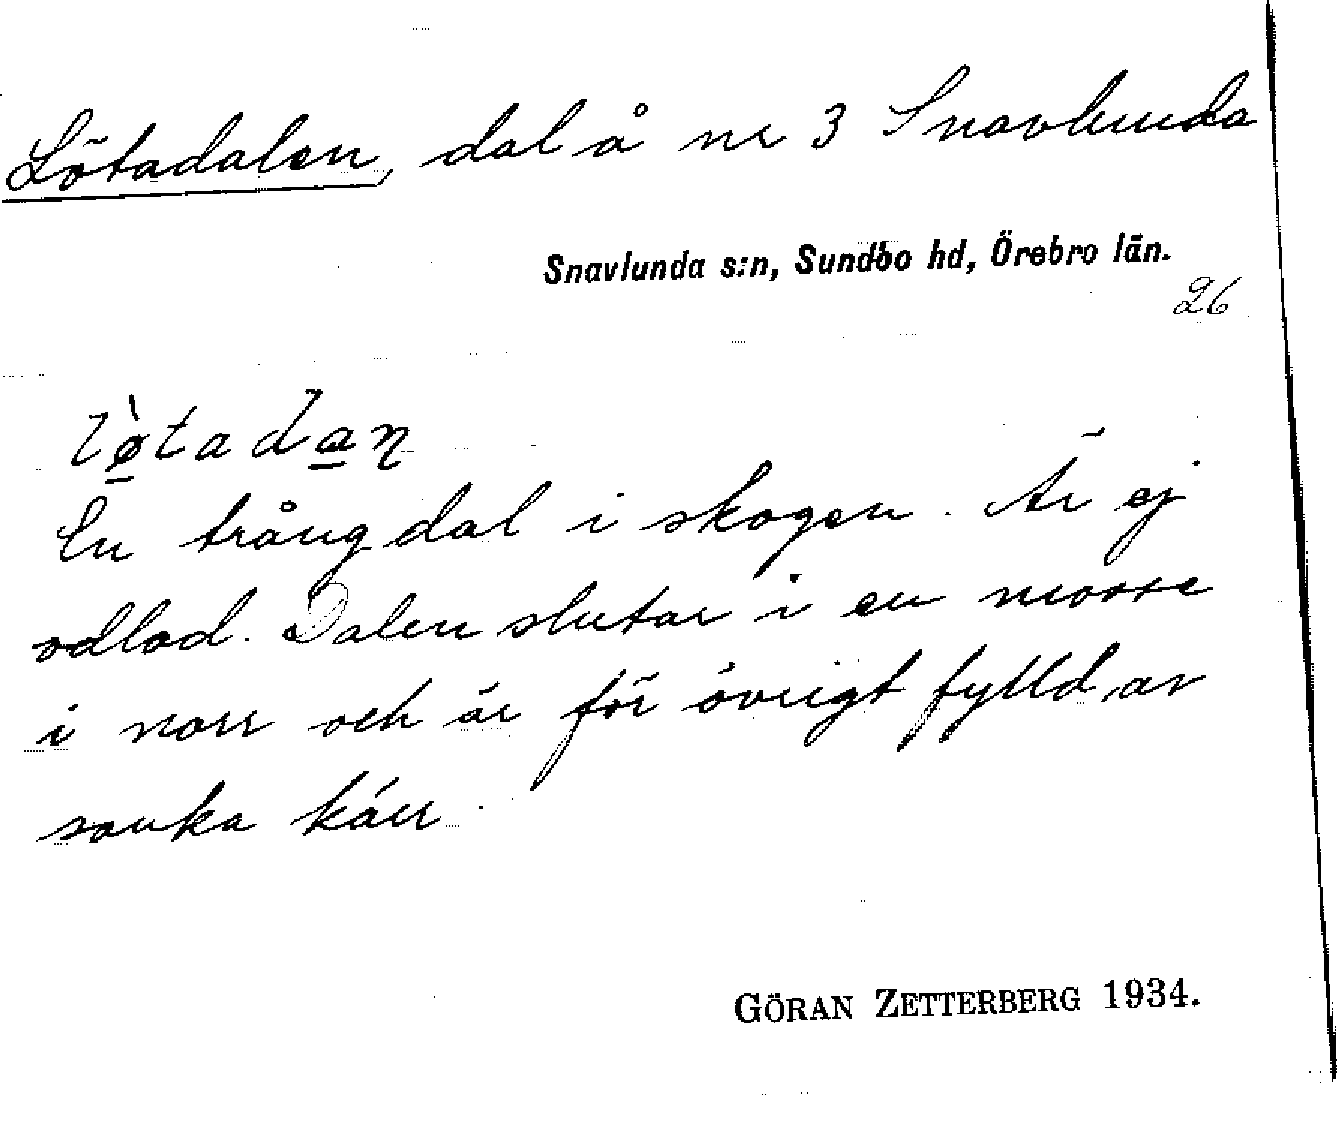 Lötadalen, dal å nr 3 Snavlunda
Snavlunda s:n, Sundbo hd, Örebro län.
26
En trång dal i skogen. Är ej
odlad. Dalen slutar i en mosse
i norr och är för övrigt fylld av
sanka kärr.
GÖRAN ZETTERBERG 1934.